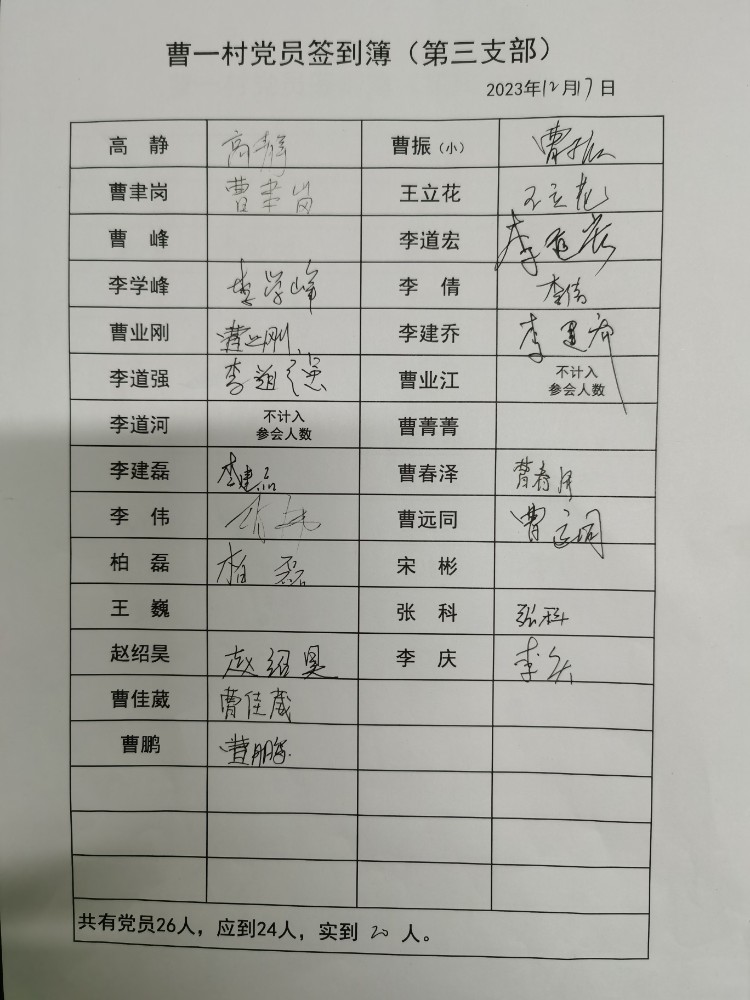 曹一村党员签到簿（第三支部）
2023年12月17日
高 静 高静 曹振（小） 曹振
曹聿岗 曹聿岗 王立花 王立花
曹 峰 李道宏 李道宏
李学峰 李学峰 李 倩 李倩
曹业刚 曹业刚 李建乔 李建乔
李道强 李道强 曹业江 不计入
参会人数
李道河 不计入
参会人数 曹菁菁
李建磊 李建磊 曹春泽 曹春泽
李 伟 李伟 曹远同 曹远同
柏 磊 柏磊 宋 彬
王 巍 张 科 张科
赵绍昊 赵绍昊 李 庆 李庆
曹佳葳 曹佳葳
曹鹏 曹鹏
共有党员26人，应到24人，实到 20 人。